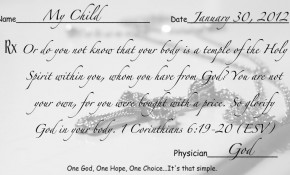 Name My Child Date January 30, 2012
Rx Or do you not know that your body is a temple of the Holy
Spirit within you, whom you have from God? You are not
your own, for you were bought with a price. So glorify
God in your body. 1 Corinthians 6:19-20 (ESV)
Physician God
One God, One Hope, One Choice...It's that simple.